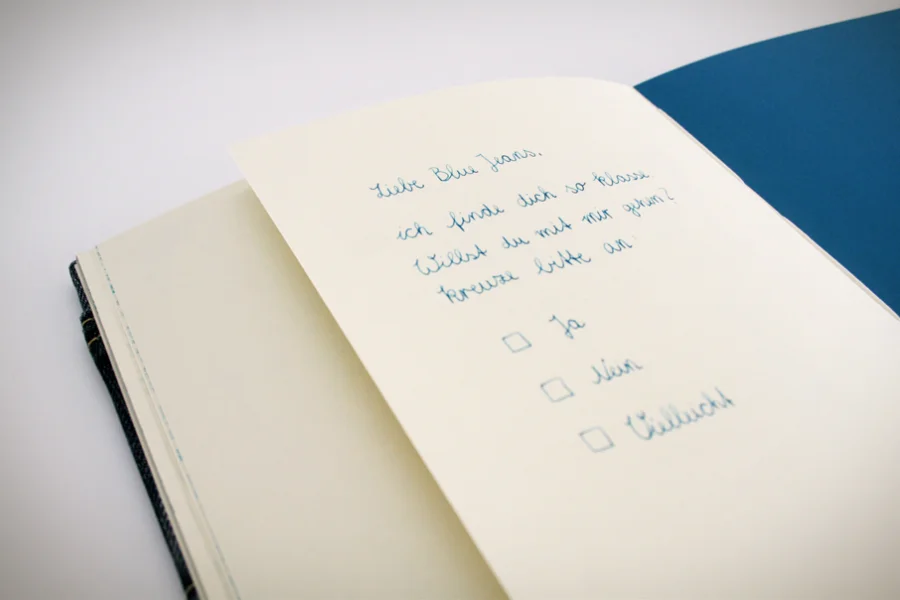 Liebe Blue Jeans,
ich finde dich so klasse
Willst du mit mir gehen?
Kreuze bitte an
Ja
Nein
Vielleicht